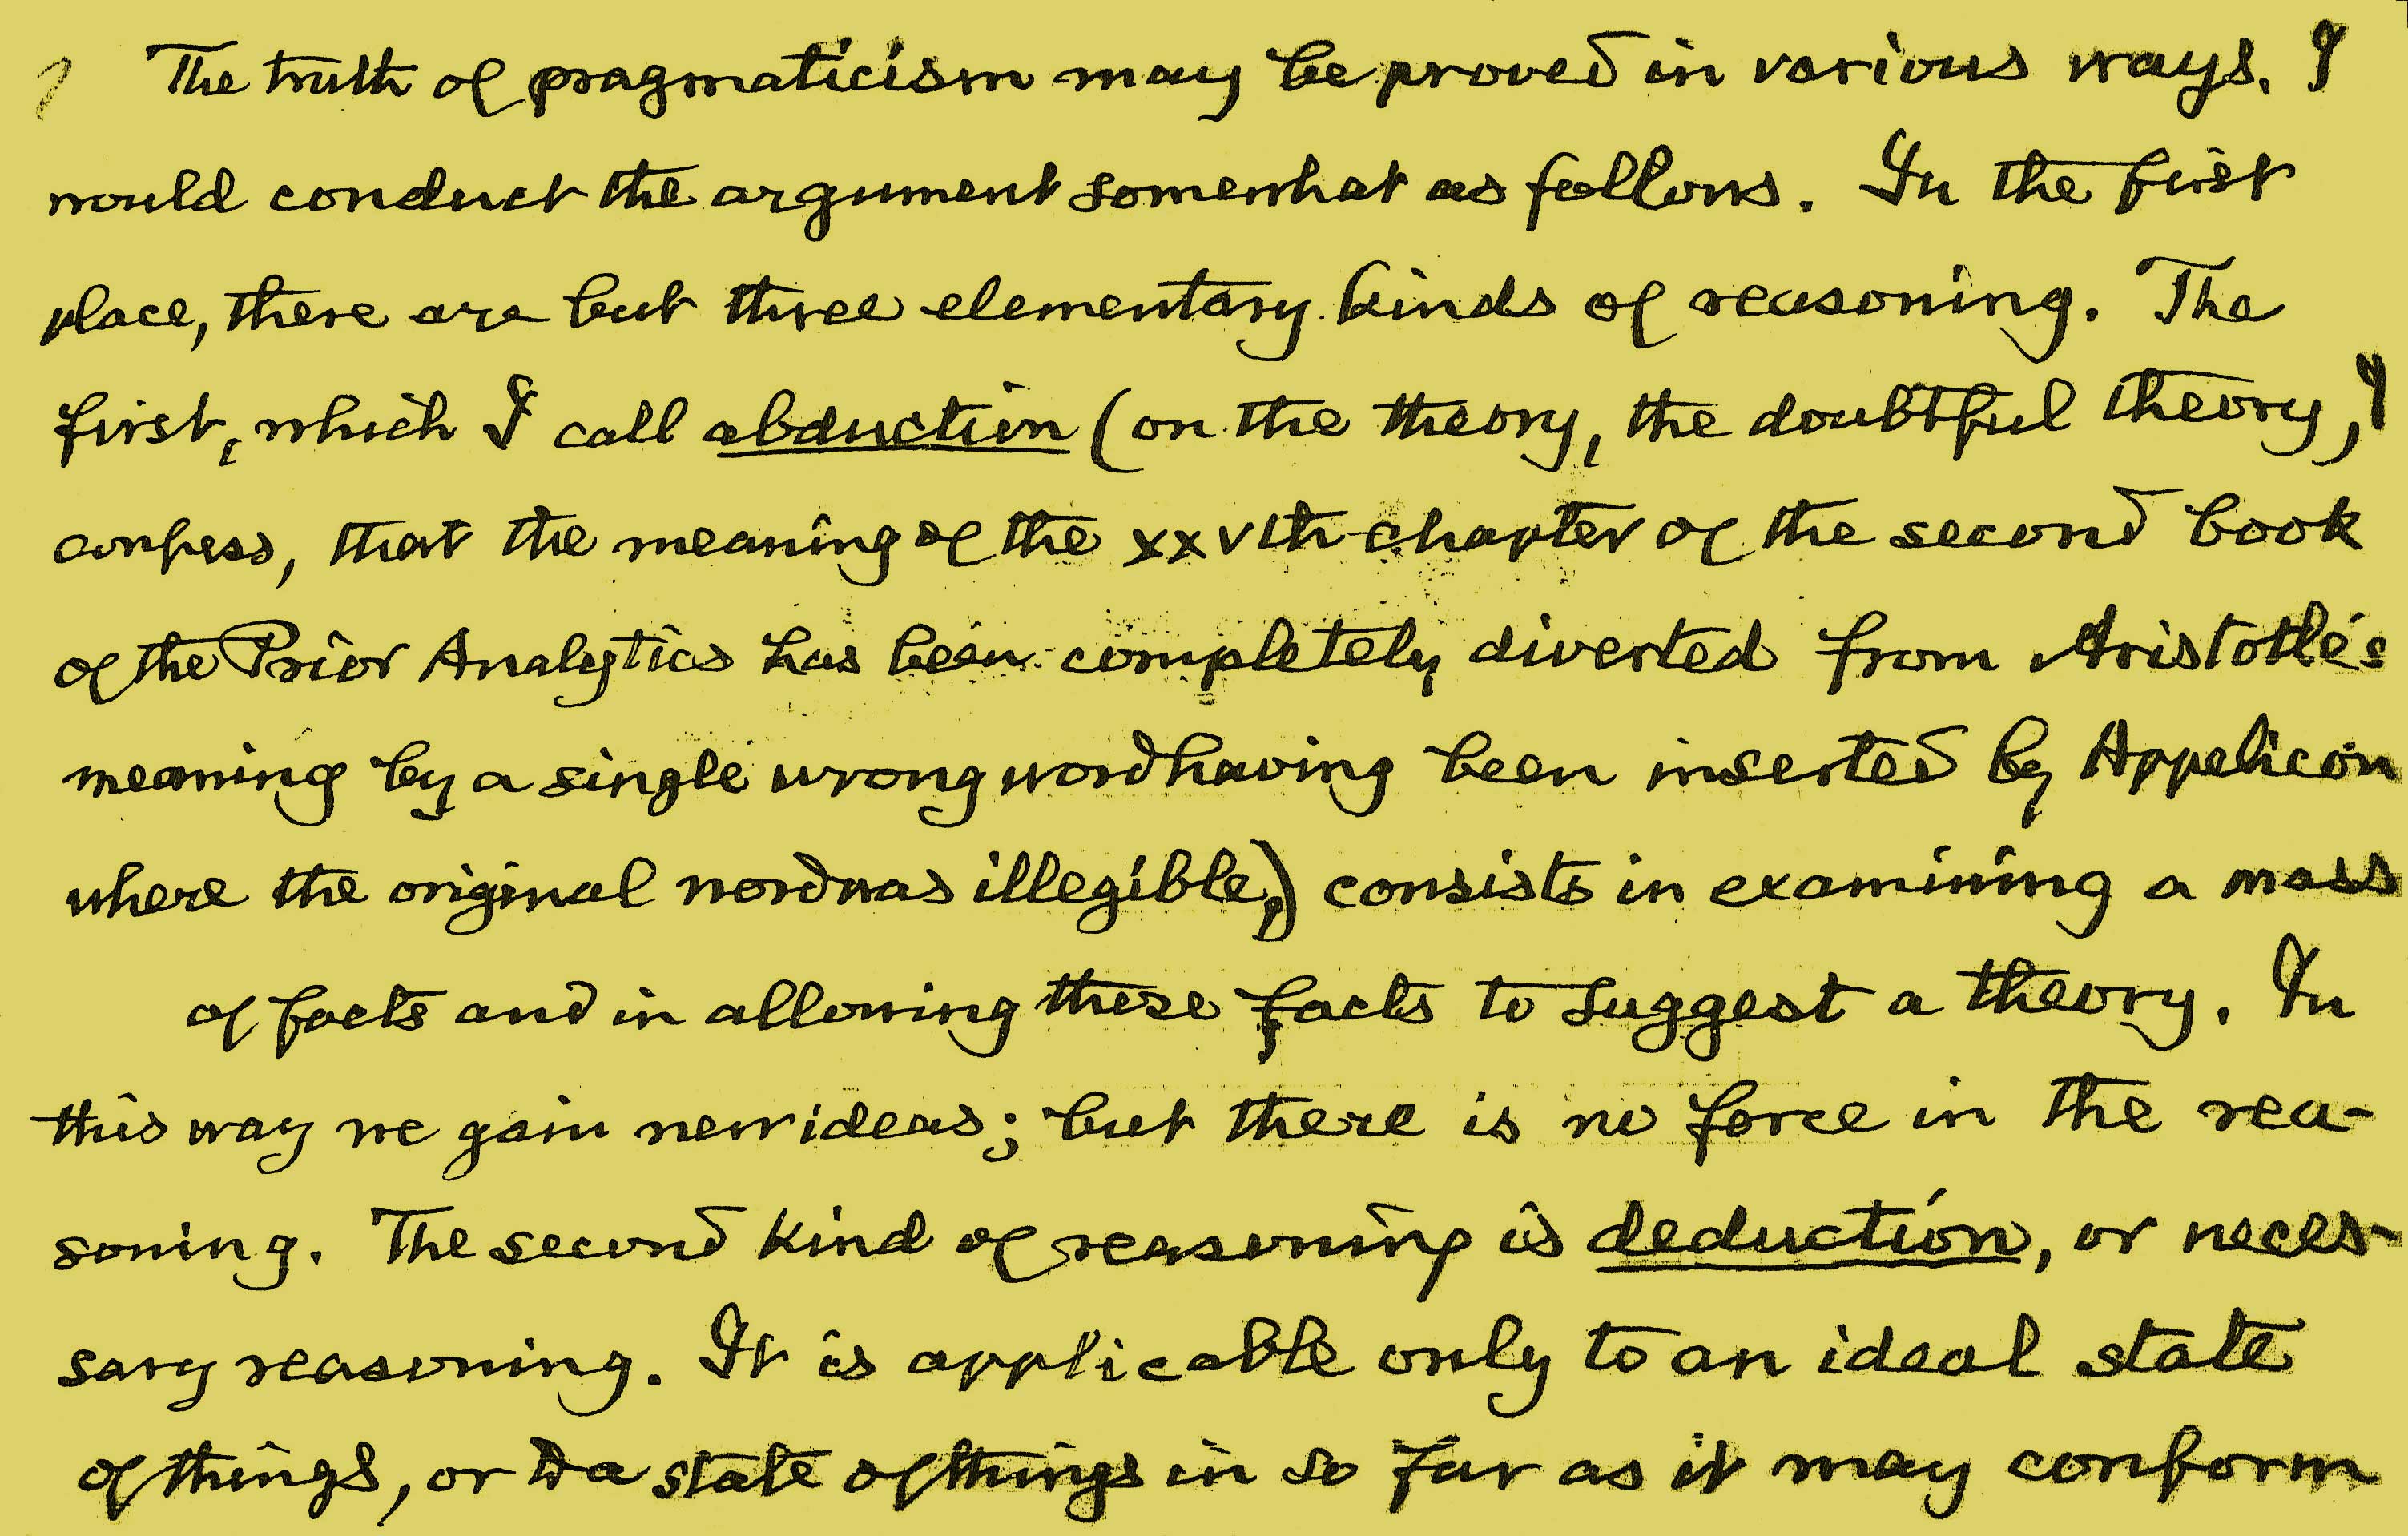 The truth of pragmaticism may be proved in various ways. I
would conduct the argument somewhat as follows. In the first
place, there are but three elementary kinds of reasoning. The
first, which I call abduction (on the theory, the doubtful theory, I
confess, that the meaning of the xxvth chapter of the second book
of the Prior Analytics has been completely diverted from Aristotle's
meaning by a single wrong word having been inserted by Appelicon
where the original word was illegible,) consists in examining a mass
of facts and in allowing these facts to suggest a theory. In
this way we gain new ideas; but there is no force in the rea-
soning. The second kind of reasoning is deduction, or neces-
sary reasoning. It is applicable only to an ideal state
of things, or to a state of things in so far as it may conform